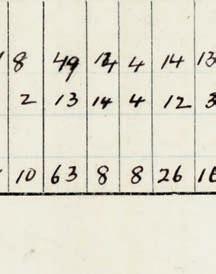 8 49 4 14 13
2 13 14 4 12 3
10 63 8 8 26